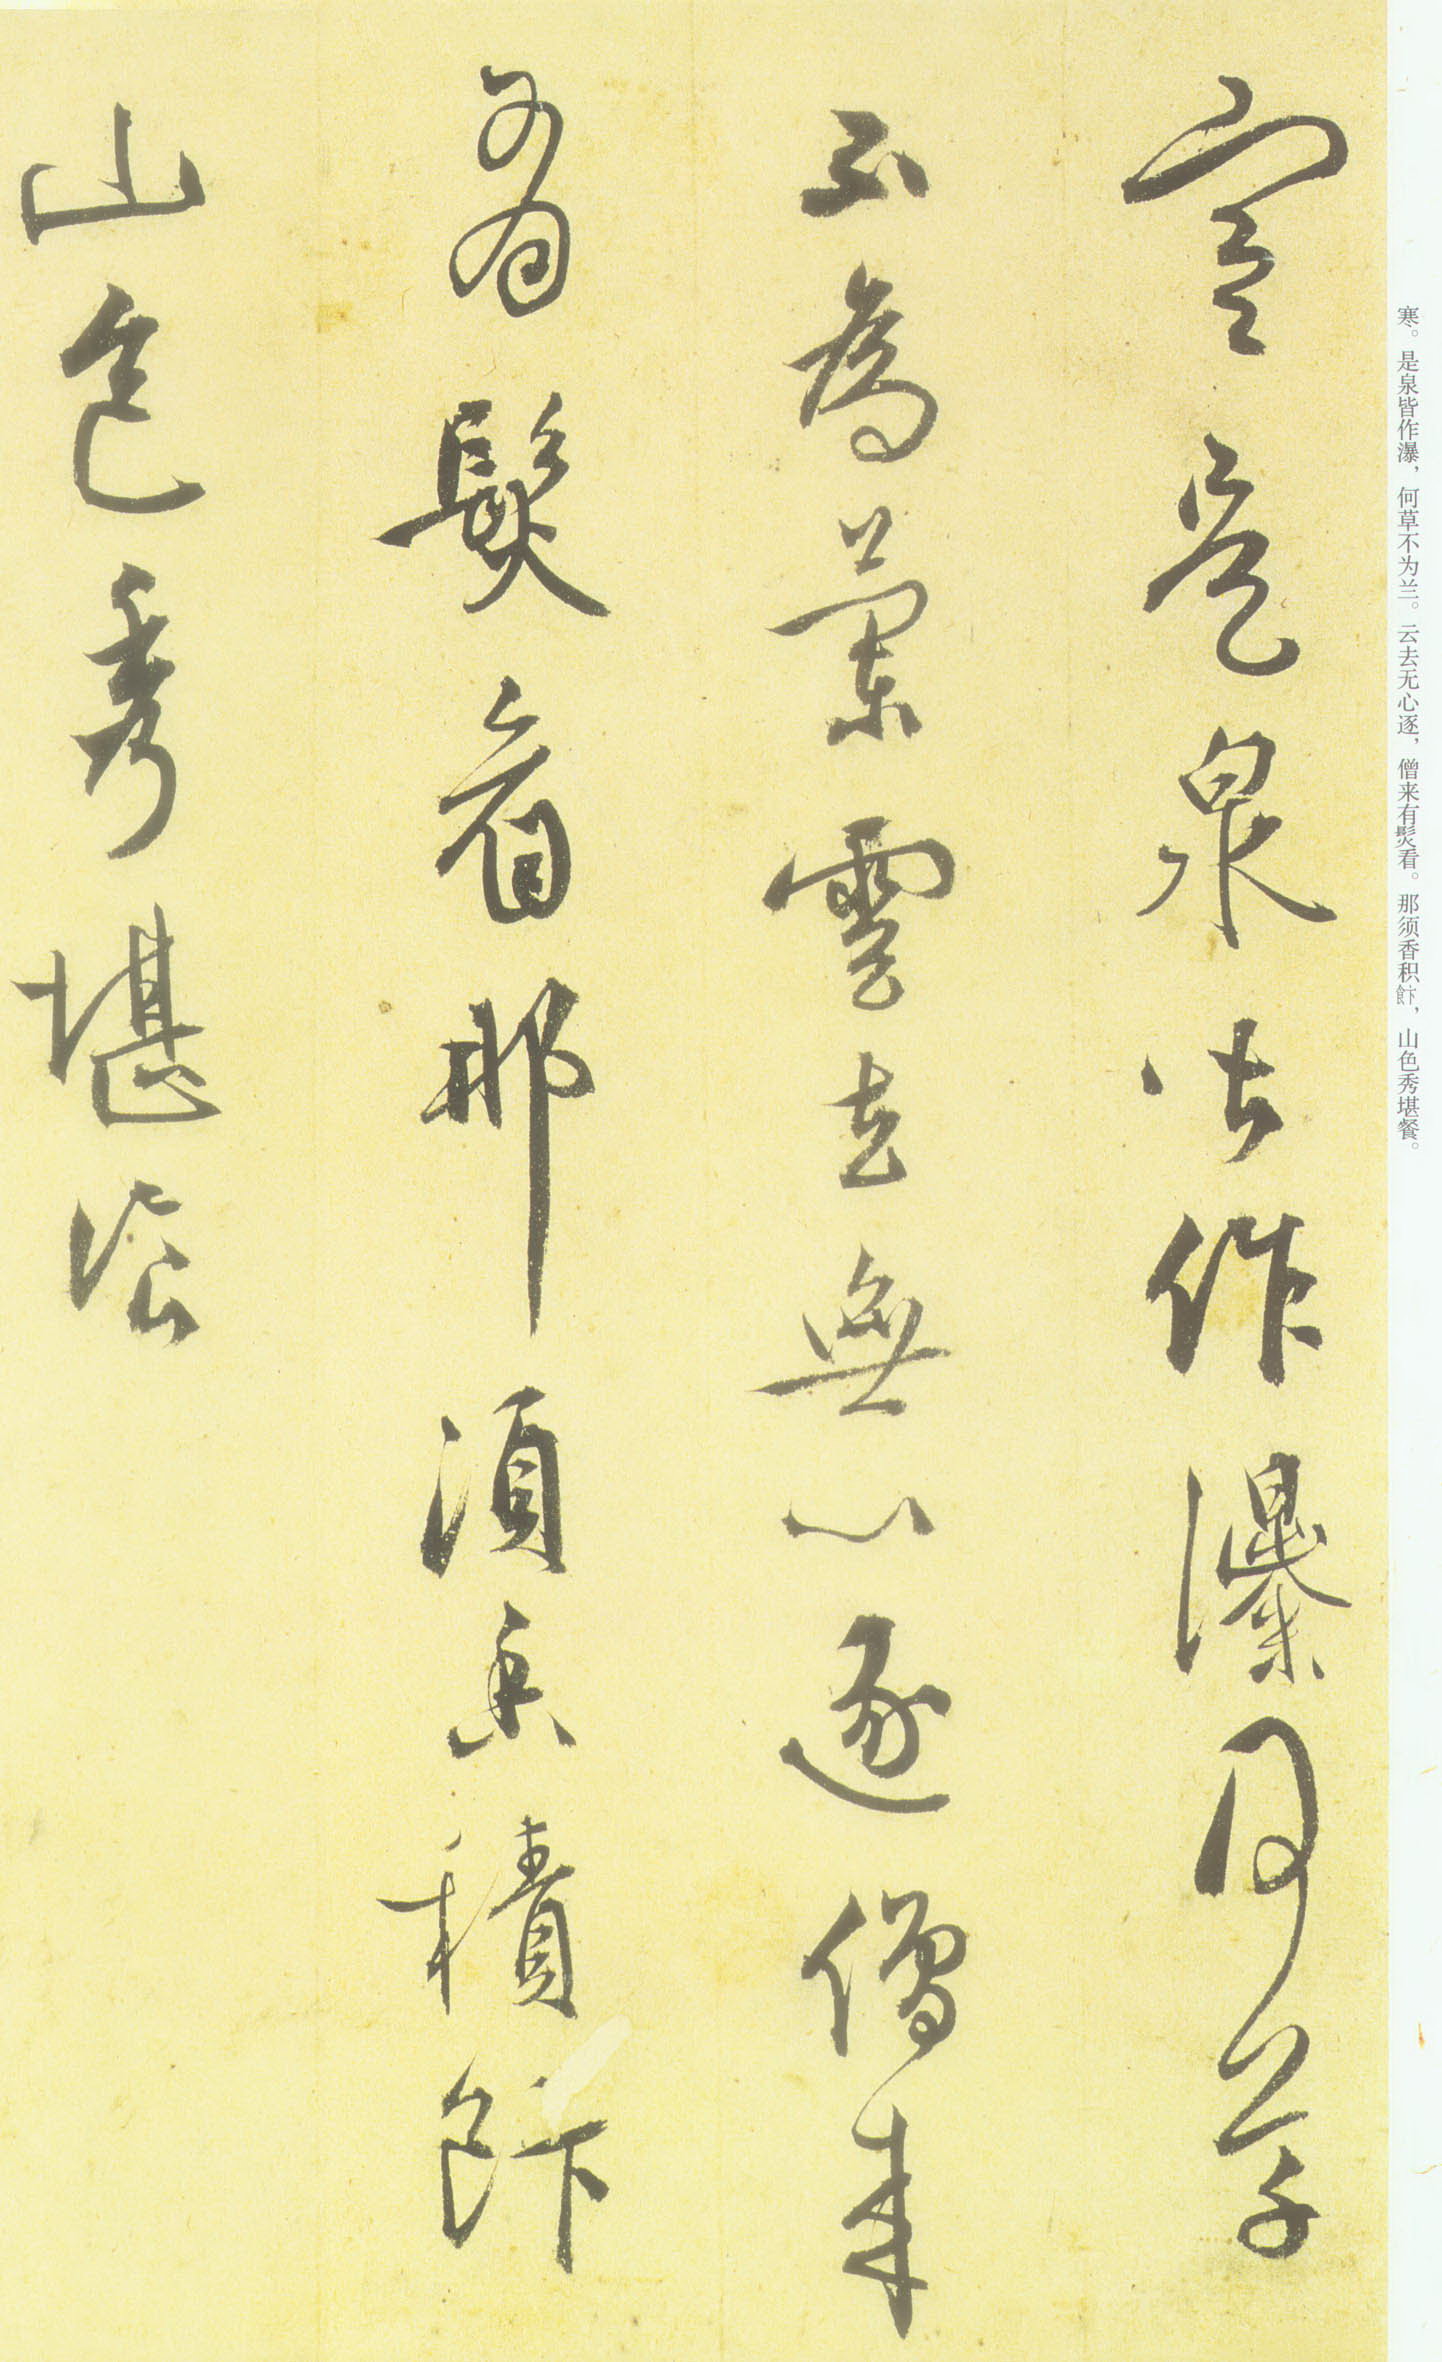 寒。是泉皆作瀑，何草不为兰。云去无心逐，僧来有髮看。那须香积飰，山色秀堪餐。
寒是泉皆作瀑何草
不為蘭雲去無心逐僧来
有髮看那須香積飰
山色秀堪飡